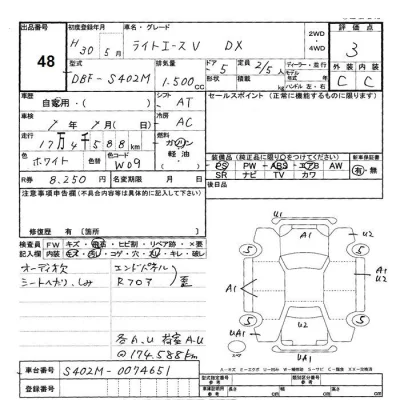 出品番号 初度登録年月 車名・グレード 2WD ・ 4WD 評価点
48 H 30年 5月 ライトエースV DX 3
型式 排気量 ドア 定員 ディーラー・並行 外装 内装
DBF-S402M 1.500cc 5 2/5人 形状 積載 kg モデル 年 ハンドル 左・右 C C
車歴 シフト セールスポイント(正常に機能するものに限ります)
自家用・( ) AT
車検 冷房
年 月(日) AC
走行 燃料
17万4588km ガソリン 軽油 ( )
色 色替 色コード 装備品(純正品に限り○をつけてください) 新車保証書
ホワイト W09 PS PW ABS エアB AW 有・無
SR ナビ TV カワ
R券 8.250円 名変期限 月 日 後日品
注意事項申告欄(不具合内容等は具体的に記入して下さい)
修復歴 有( )箇所
検査員 FW キズ・飛石・ヒビ割・リペア跡・×要
記入欄 内装 キズ・汚レ・コゲ・穴・スレ・キレ・破レ
オーディオ欠 エンドパネル
シートヘタリ、しみ R7ロア 歪
各A.U 指室A.U
@174.588km
U1 A1 U2 5 5
A1 A1 U2
5 U2 5
UA1 UA1
車台番号 S402M-0074651
登録番号
型式指定番号 参考 類別区分番号 参考
車検証明所 参考 長さ cm 幅 cm 高さ cm